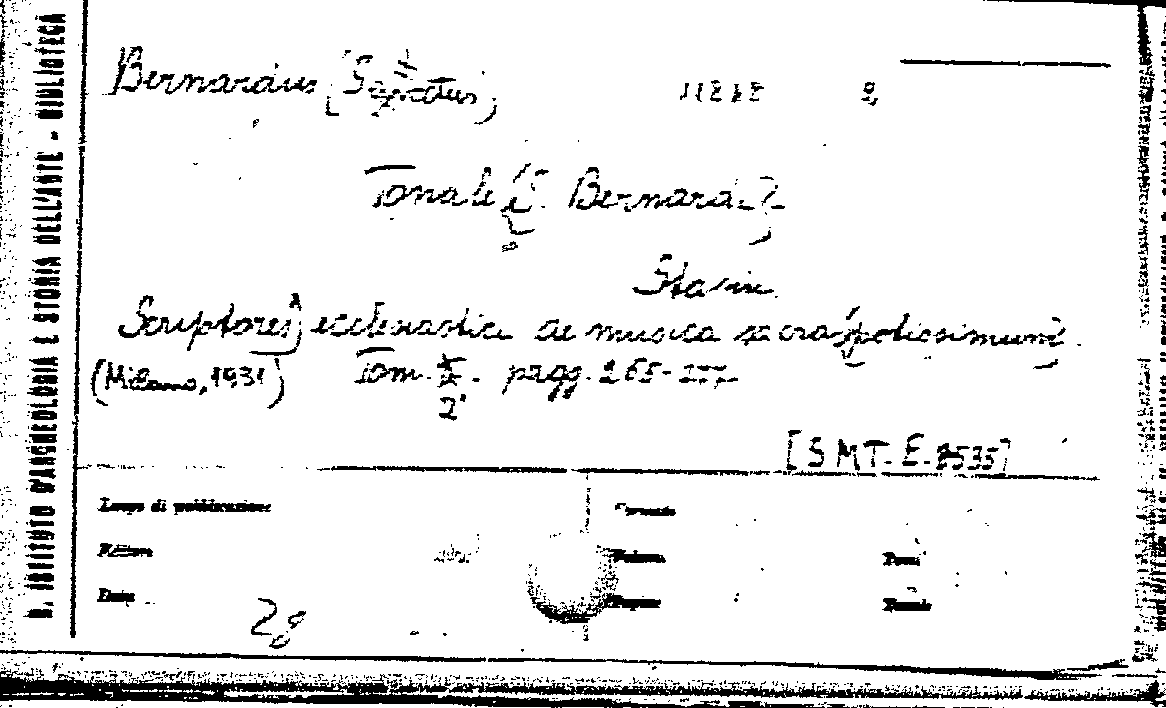 R. ISTITUTO D'ARCHEOLOGIA E STORIA DELL'ARTE - BIBLIOTECA
Bernardus (Sanctus)
Tonale (S. Bernardi)
Sta in
Scriptores ecclesiastici de musica sacra potissimum
(Milano, 1931) Tom. 2° pagg. 265-277
[SMT. E. 8535]
Luogo di pubblicazione Formato
Editore Volume
Data Pagine Tavole
28